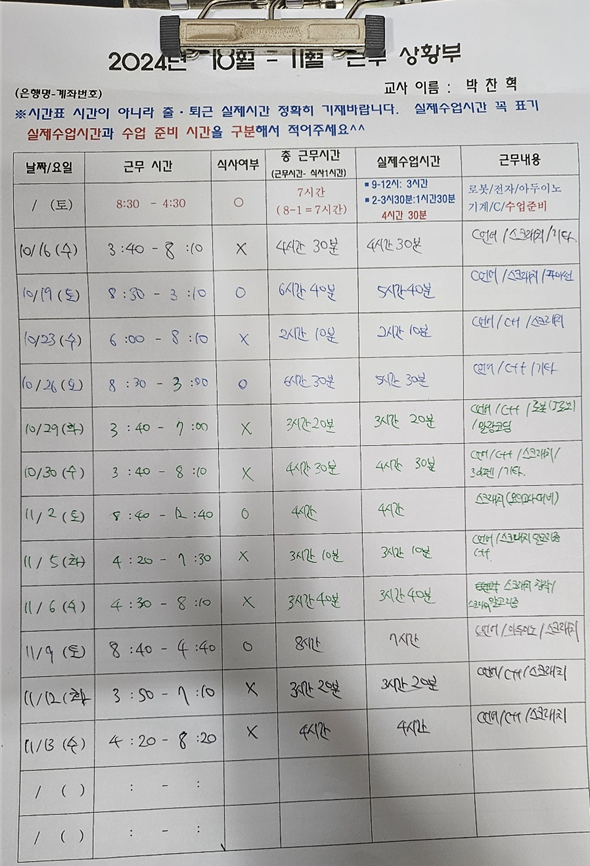 2024년 10월 - 11월 근무 상황부
(은행명-계좌번호) 교사 이름 : 박 찬 혁
※시간표 시간이 아니라 출·퇴근 실제시간 정확히 기재바랍니다. 실제수업시간 꼭 표기
실제수업시간과 수업 준비 시간을 구분해서 적어주세요^^
날짜/요일 근무 시간 식사여부 총 근무시간 (근무시간- 식사1시간) 실제수업시간 근무내용
/ (토) 8:30 - 4:30 ○ 7시간 (8-1=7시간) ▪ 9-12시: 3시간 ▪ 2-3시30분:1시간30분 4시간 30분 로봇/전자/아두이노 기계/C/수업준비
10/16 (수) 3:40 - 8:10 X 4시간 30분 4시간 30분 C언어/스크래치/기타
10/19 (토) 8:30 - 3:10 O 6시간 40분 5시간 40분 C언어/스크래치/파이썬
10/23 (수) 6:00 - 8:10 X 2시간 10분 2시간 10분 C언어/C++/스크래치
10/26 (토) 8:30 - 3:00 O 6시간 30분 5시간 30분 C언어/C++/기타
10/29 (화) 3:40 - 7:00 X 3시간 20분 3시간 20분 C언어/C++/로봇 /말랑코딩
10/30 (수) 3:40 - 8:10 X 4시간 30분 4시간 30분 C언어/C++/스크래치/ 3d펜/기타.
11/2 (토) 8:40 - 12:40 O 4시간 4시간 스크래치
11/5 (화) 4:20 - 7:30 X 3시간 10분 3시간 10분 C언어/스크래치 알고리즘 C++
11/6 (수) 4:30 - 8:10 X 3시간 40분 3시간 40분 스크래치 알고리즘
11/9 (토) 8:40 - 4:40 O 8시간 7시간 C언어/아두이노/스크래치
11/12 (화) 3:50 - 7:10 X 3시간 20분 3시간 20분 C언어/C++/스크래치
11/13 (수) 4:20 - 8:20 X 4시간 4시간 C언어/C++/스크래치
/ ( ) : - :
/ ( ) : - :